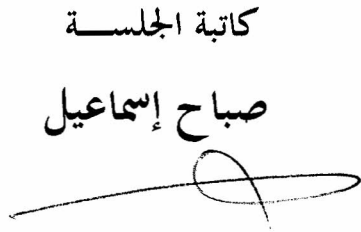 كاتبة الجلســـة
صباح إسماعيل